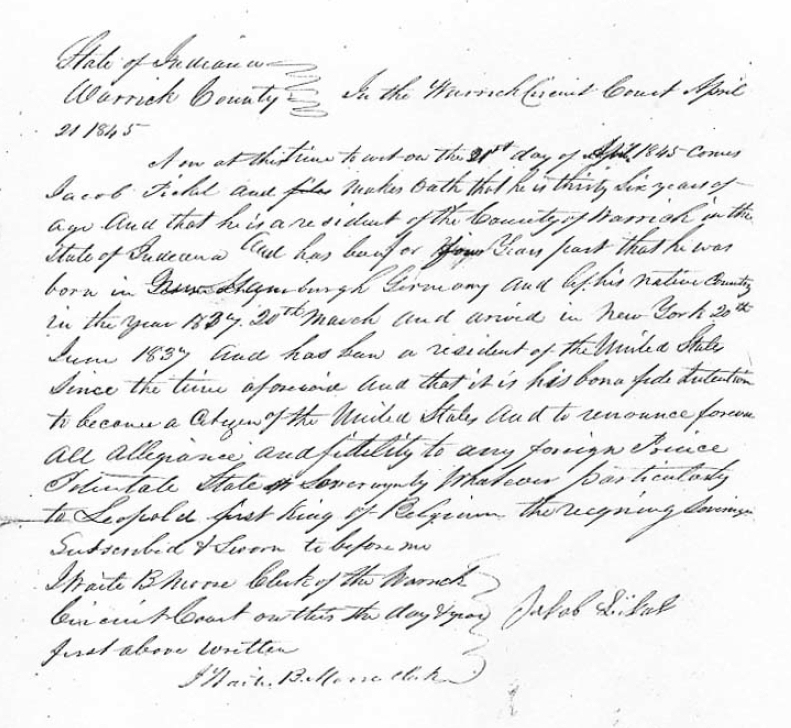 State of Indiana
Warrick County In the Warrick Circuit Court April
21 1845
Now at this time to wit on the 21st day of April 1845 comes
Jacob Fickel and files makes Oath that he is thirty six years of
age And that he is a resident of the County of Warrick in the
State of Indiana And has been for four Years past that he was
born in burgh Germany and left his native Country
in the year 1837 20th March and arived in New York 20th
June 1837 and has been a resident of the United States
Since the time aforesaid And that it is his bona fide intention
to become a Citizen of the United States and to renounce forever
all allegiance and fidelity to any foreign Prince
Potentate State or Sovereignty Whatever particularly
to Leopold first King of Belgium the reigning Sovereign
Subscribed & Sworn to before me
I Waite B Morse Clerk of the Warrick
Circuit Court on this the day & year Jakob
first above written
Waite B. Morse Clerk